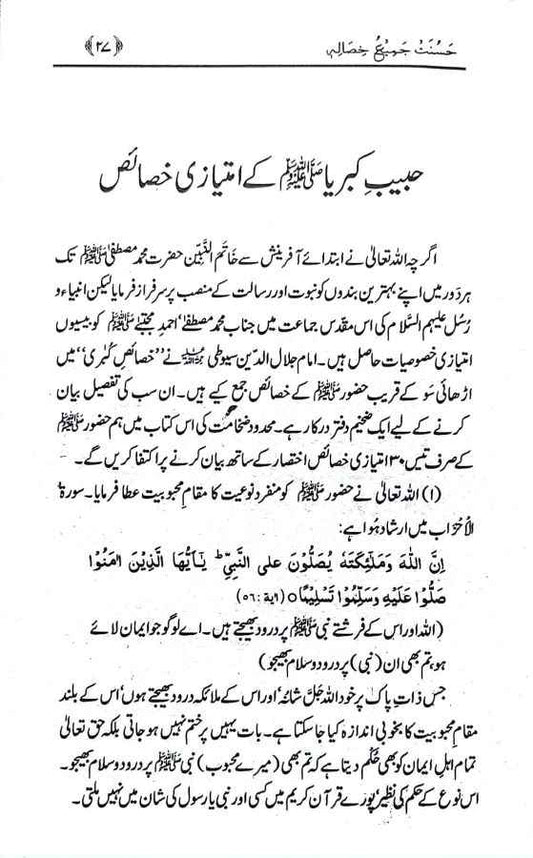 حَسُنَتْ جَمِیْعُ خِصَالِہٖ ﴿۲۷﴾
حبیبِ کبریا ﷺ کے امتیازی خصائص
اگرچہ اللہ تعالیٰ نے ابتدائے آفرینش سے خَاتَم النَّبِیّن حضرت محمد مصطفیٰ ﷺ تک
ہر دَور میں اپنے بہترین بندوں کو نبوت اور رسالت کے منصب پر سرفراز فرمایا لیکن انبیاء و
رُسُل علیہم السَّلام کی اس مقدّس جماعت میں جناب محمد مصطفےٰ‘ احمدِ مجتبےٰ ﷺ کو بیسیوں
امتیازی خصوصیات حاصل ہیں۔ امام جلال الدّین سیوطیؒ نے ’’خصائصِ کُبریٰ‘‘ میں
اڑھائی سَو کے قریب حضور ﷺ کے خصائص جمع کیے ہیں۔ ان سب کی تفصیل بیان
کرنے کے لیے ایک ضخیم دفتر درکار ہے۔ محدود ضخامت کی اس کتاب میں ہم حضور ﷺ
کے صرف تیس ۳۰ امتیازی خصائص اختصار کے ساتھ بیان کرنے پر اکتفا کریں گے۔
(۱) اللہ تعالیٰ نے حضور ﷺ کو منفرد نوعیت کا مقامِ محبوبیت عطا فرمایا۔ سورۃ
الْاَحْزاب میں ارشاد ہُوا ہے:
اِنَّ اللّٰهَ وَمَلٰٓئِكَتَهٗ يُصَلُّوْنَ علی النَّبِیِّ ؕ یٰٓاَیُّهَا الَّذِیْنَ اٰمَنُوْا
صَلُّوْا عَلَيْهِ وَسَلِّمُوْا تَسْلِيْمًا ○ (اٰیة : ۵۶)
(اللہ اور اس کے فرشتے نبی ﷺ پر درود بھیجتے ہیں۔ اے لوگو جو ایمان لائے
ہو، تم بھی ان (نبی) پر درود و سلام بھیجو)
جس ذاتِ پاک پر خود اللہ جَلَّ شانہٗ‘ اور اس کے ملائکہ درود بھیجتے ہوں‘ اس کے بلند
مقامِ محبوبیت کا بخوبی اندازہ کیا جاسکتا ہے۔ بات یہیں پر ختم نہیں ہو جاتی بلکہ حق تعالیٰ
تمام اہلِ ایمان کو بھی حُکم دیتا ہے کہ تم بھی (میرے محبوب) نبی ﷺ پر درود و سلام بھیجو۔
اس نوع کے حکم کی نظیر‘ پورے قرآن کریم میں کسی اور نبی یا رسول کی شان میں نہیں ملتی۔